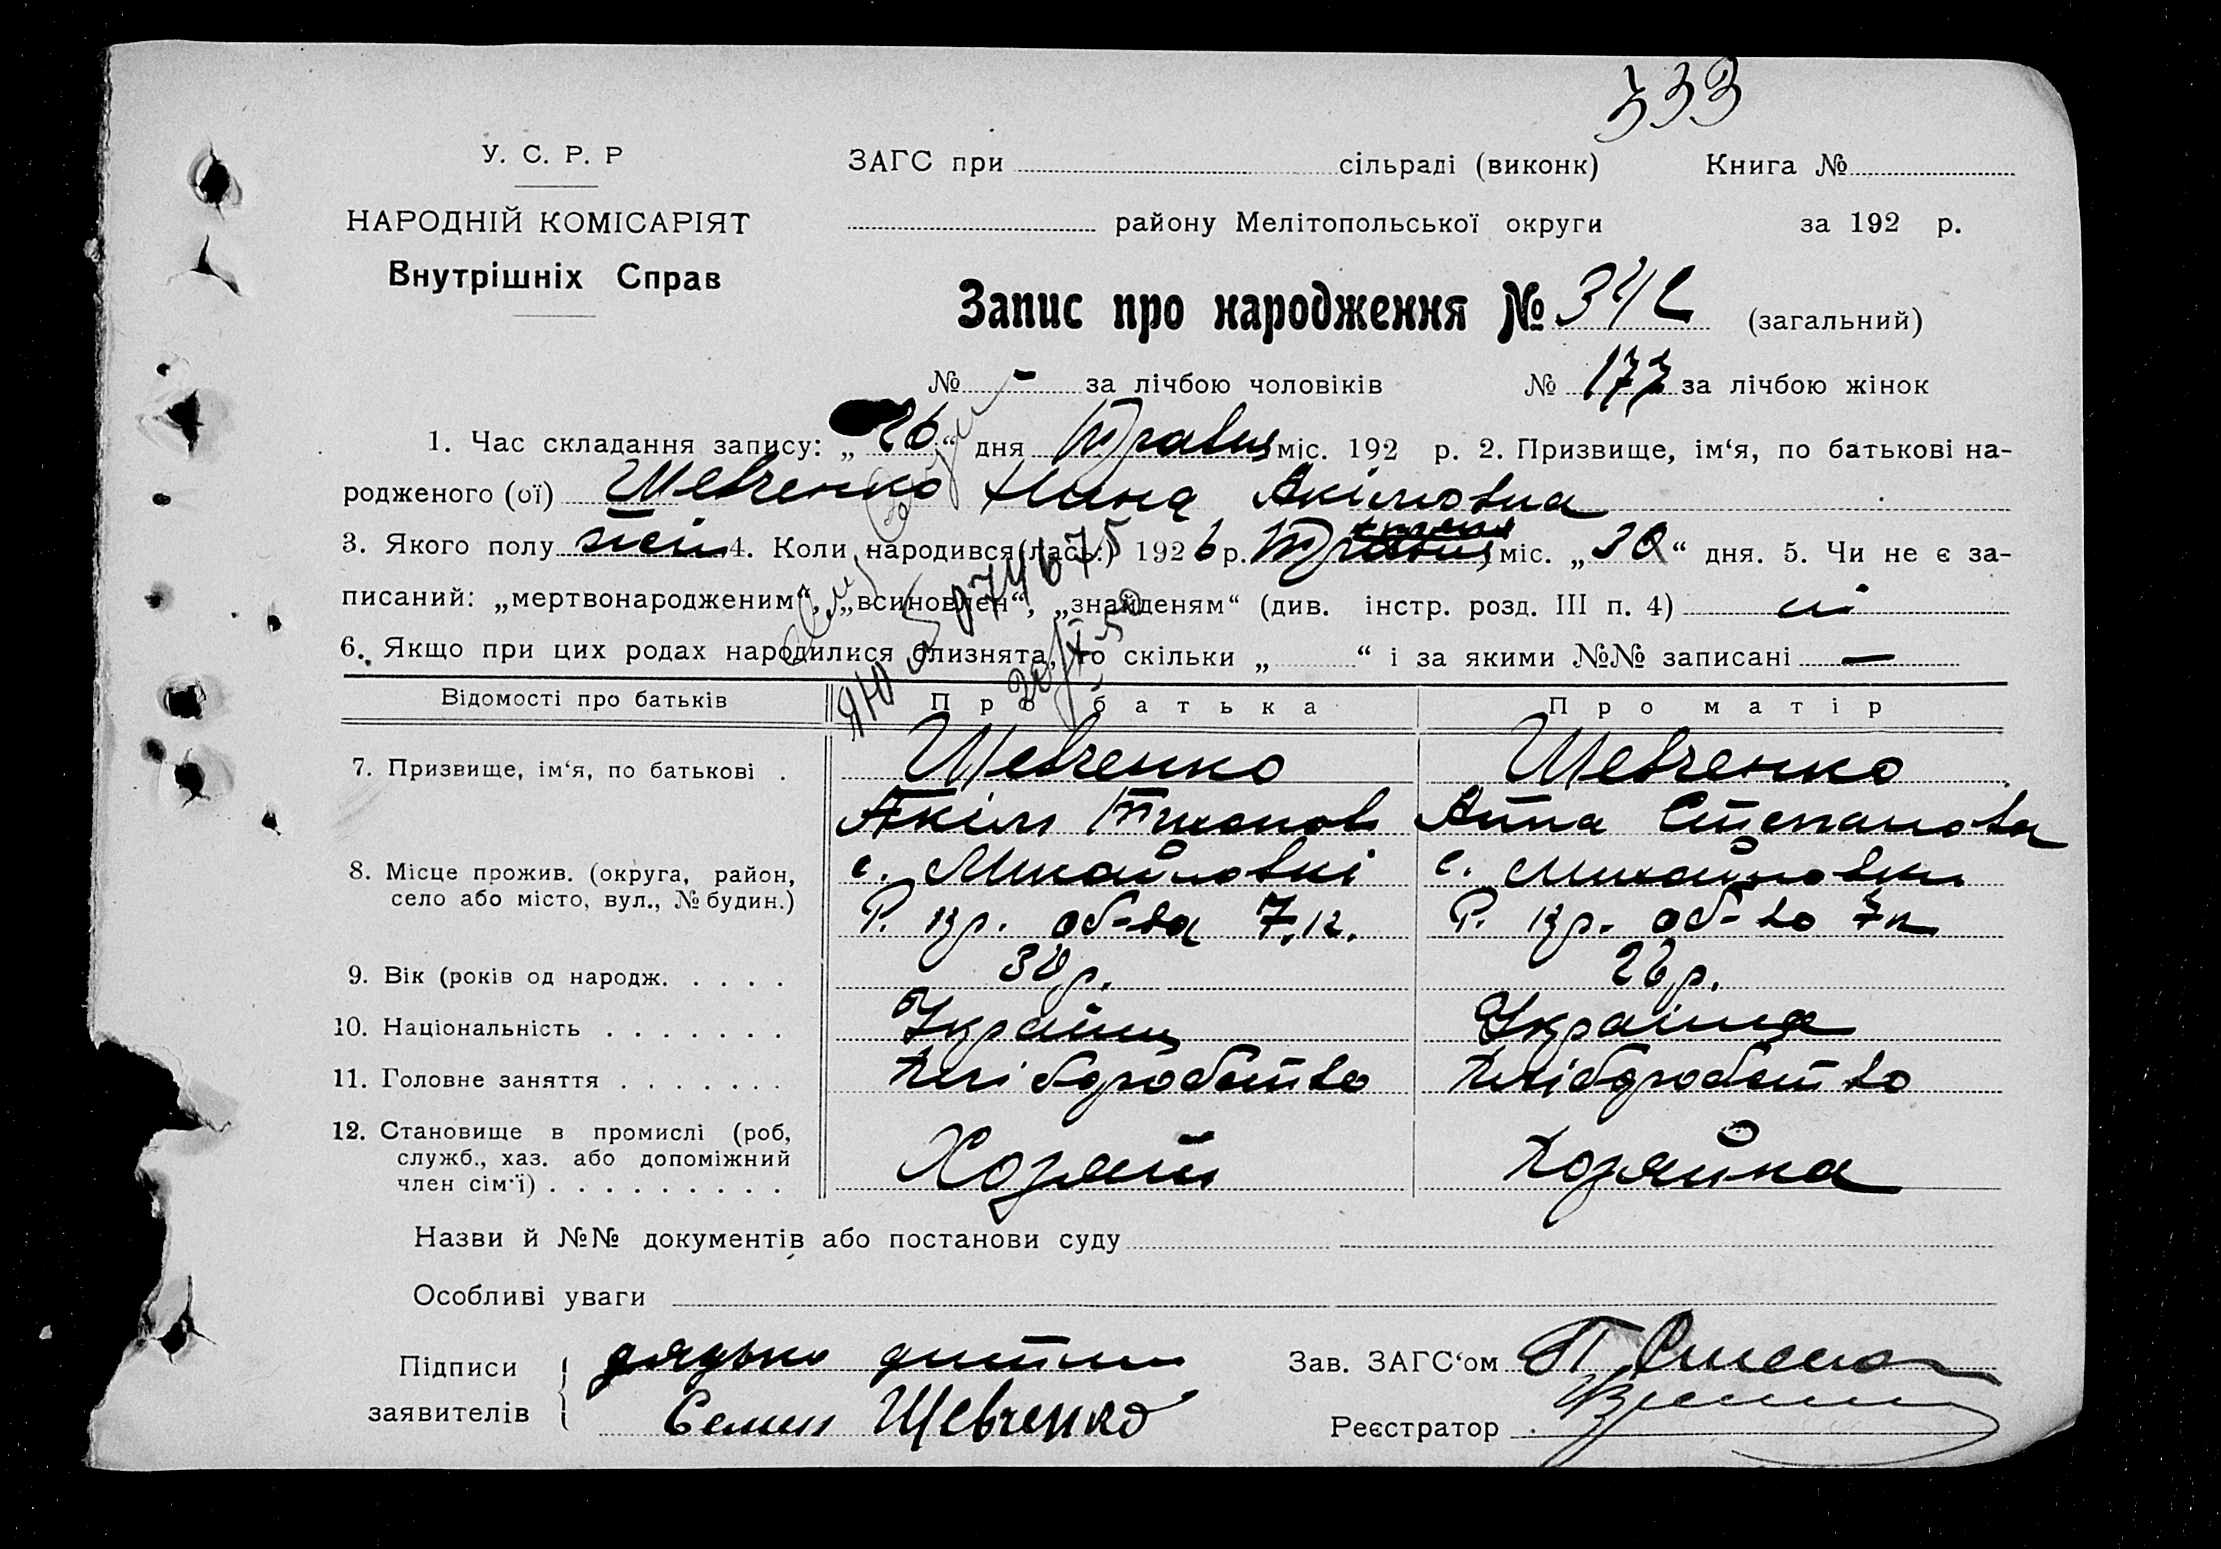 333
У. С. Р. Р
ЗАГС при сільраді (виконк) Книга №
НАРОДНІЙ КОМІСАРІЯТ
району Мелітопольської округи за 192 р.
Внутрішніх Справ
Запис про народження № 342 (загальний)
№ - за лічбою чоловіків № 177 за лічбою жінок
1. Час складання запису: „26“ дня Травня міс. 192 р. 2. Призвище, ім‘я, по батькові на-
родженого (ої) Шевченко Нина Акімовна
3. Якого полу жен 4. Коли народився(лась:) 1926 р. міс. „30“ дня. 5. Чи не є за-
писаний: „мертвонародженим“, „всиновлен“, „знайденям“ (див. інстр. розд. III п. 4) ні
6. Якщо при цих родах народилися близнята, то скільки „ “ і за якими №№ записані —
ЯЮ 074675
Відомості про батьків Про батька Про матір
7. Призвище, ім‘я, по батькові . Шевченко Шевченко
Акім Анна Степановна
8. Місце прожив. (округа, район, с. Михайловкі с. Михайловки
село або місто, вул., № будин.) Р. кр. об-ва 7 к. Р. кр. об-во 7 к
9. Вік (років од народж. . . . . 30 р. 26 р.
10. Національність . . . . . . . Українц Українка
11. Головне заняття . . . . . . . Хліборобство Хліборобство
12. Становище в промислі (роб,
служб., хаз. або допоміжний Хозяин Хозяйка
член сім‘ї) . . . . . . . . .
Назви й №№ документів або постанови суду
Особливі уваги
Підписи дядько дитини Зав. ЗАГС‘ом
заявителів Семен Шевченко Реєстратор